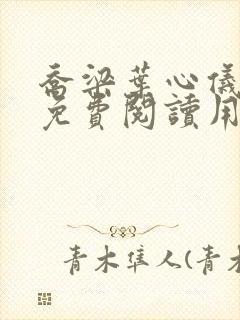 喬梁葉心儀
免費閱讀用
青木隼人(青木